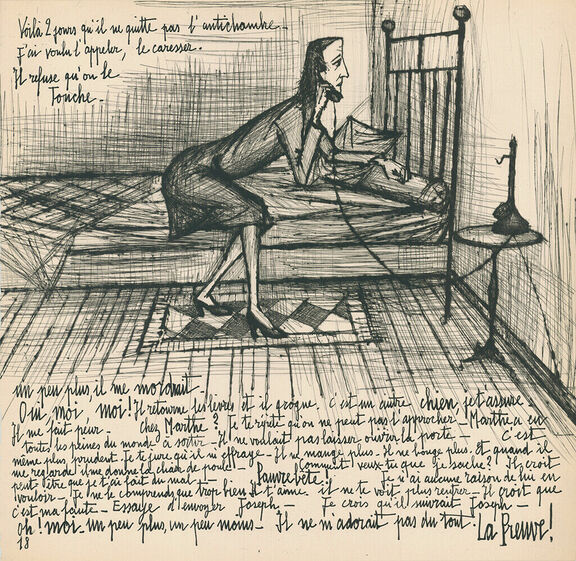 Voilà 2 jours qu'il ne quitte pas l'antichambre.
J'ai voulu l'appeler, le caresser.
Il refuse qu'on le
Touche.
un peu plus, il me mordrait.
Oui, moi, moi! Il retourne les lèvres et il grogne. C'est un autre chien, je t'assure.
Il me fait peur. chez Marthe? Je te répète qu'on ne peut pas l'approcher. Marthe a eu
toutes les peines du monde à sortir. Il ne voulait pas laisser ouvrir la porte. C'est
même plus prudent. Je te jure qu'il m'effraye. Il ne mange plus. Il ne bouge plus. Et quand il
me regarde il me donne la chair de poule. Comment veux-tu que je sache? Il croit
peut-être que je t'ai fait du mal. Pauvre bête! Je n'ai aucune raison de lui en
vouloir. Je ne le comprends que trop bien. Il t'aime. il ne te voit plus rentrer. Il croit que
c'est ma faute. Essaye d'envoyer Joseph. Je crois qu'il suivrait Joseph.
oh! moi. un peu plus, un peu moins. Il ne m'adorait pas du tout. La Preuve!
18